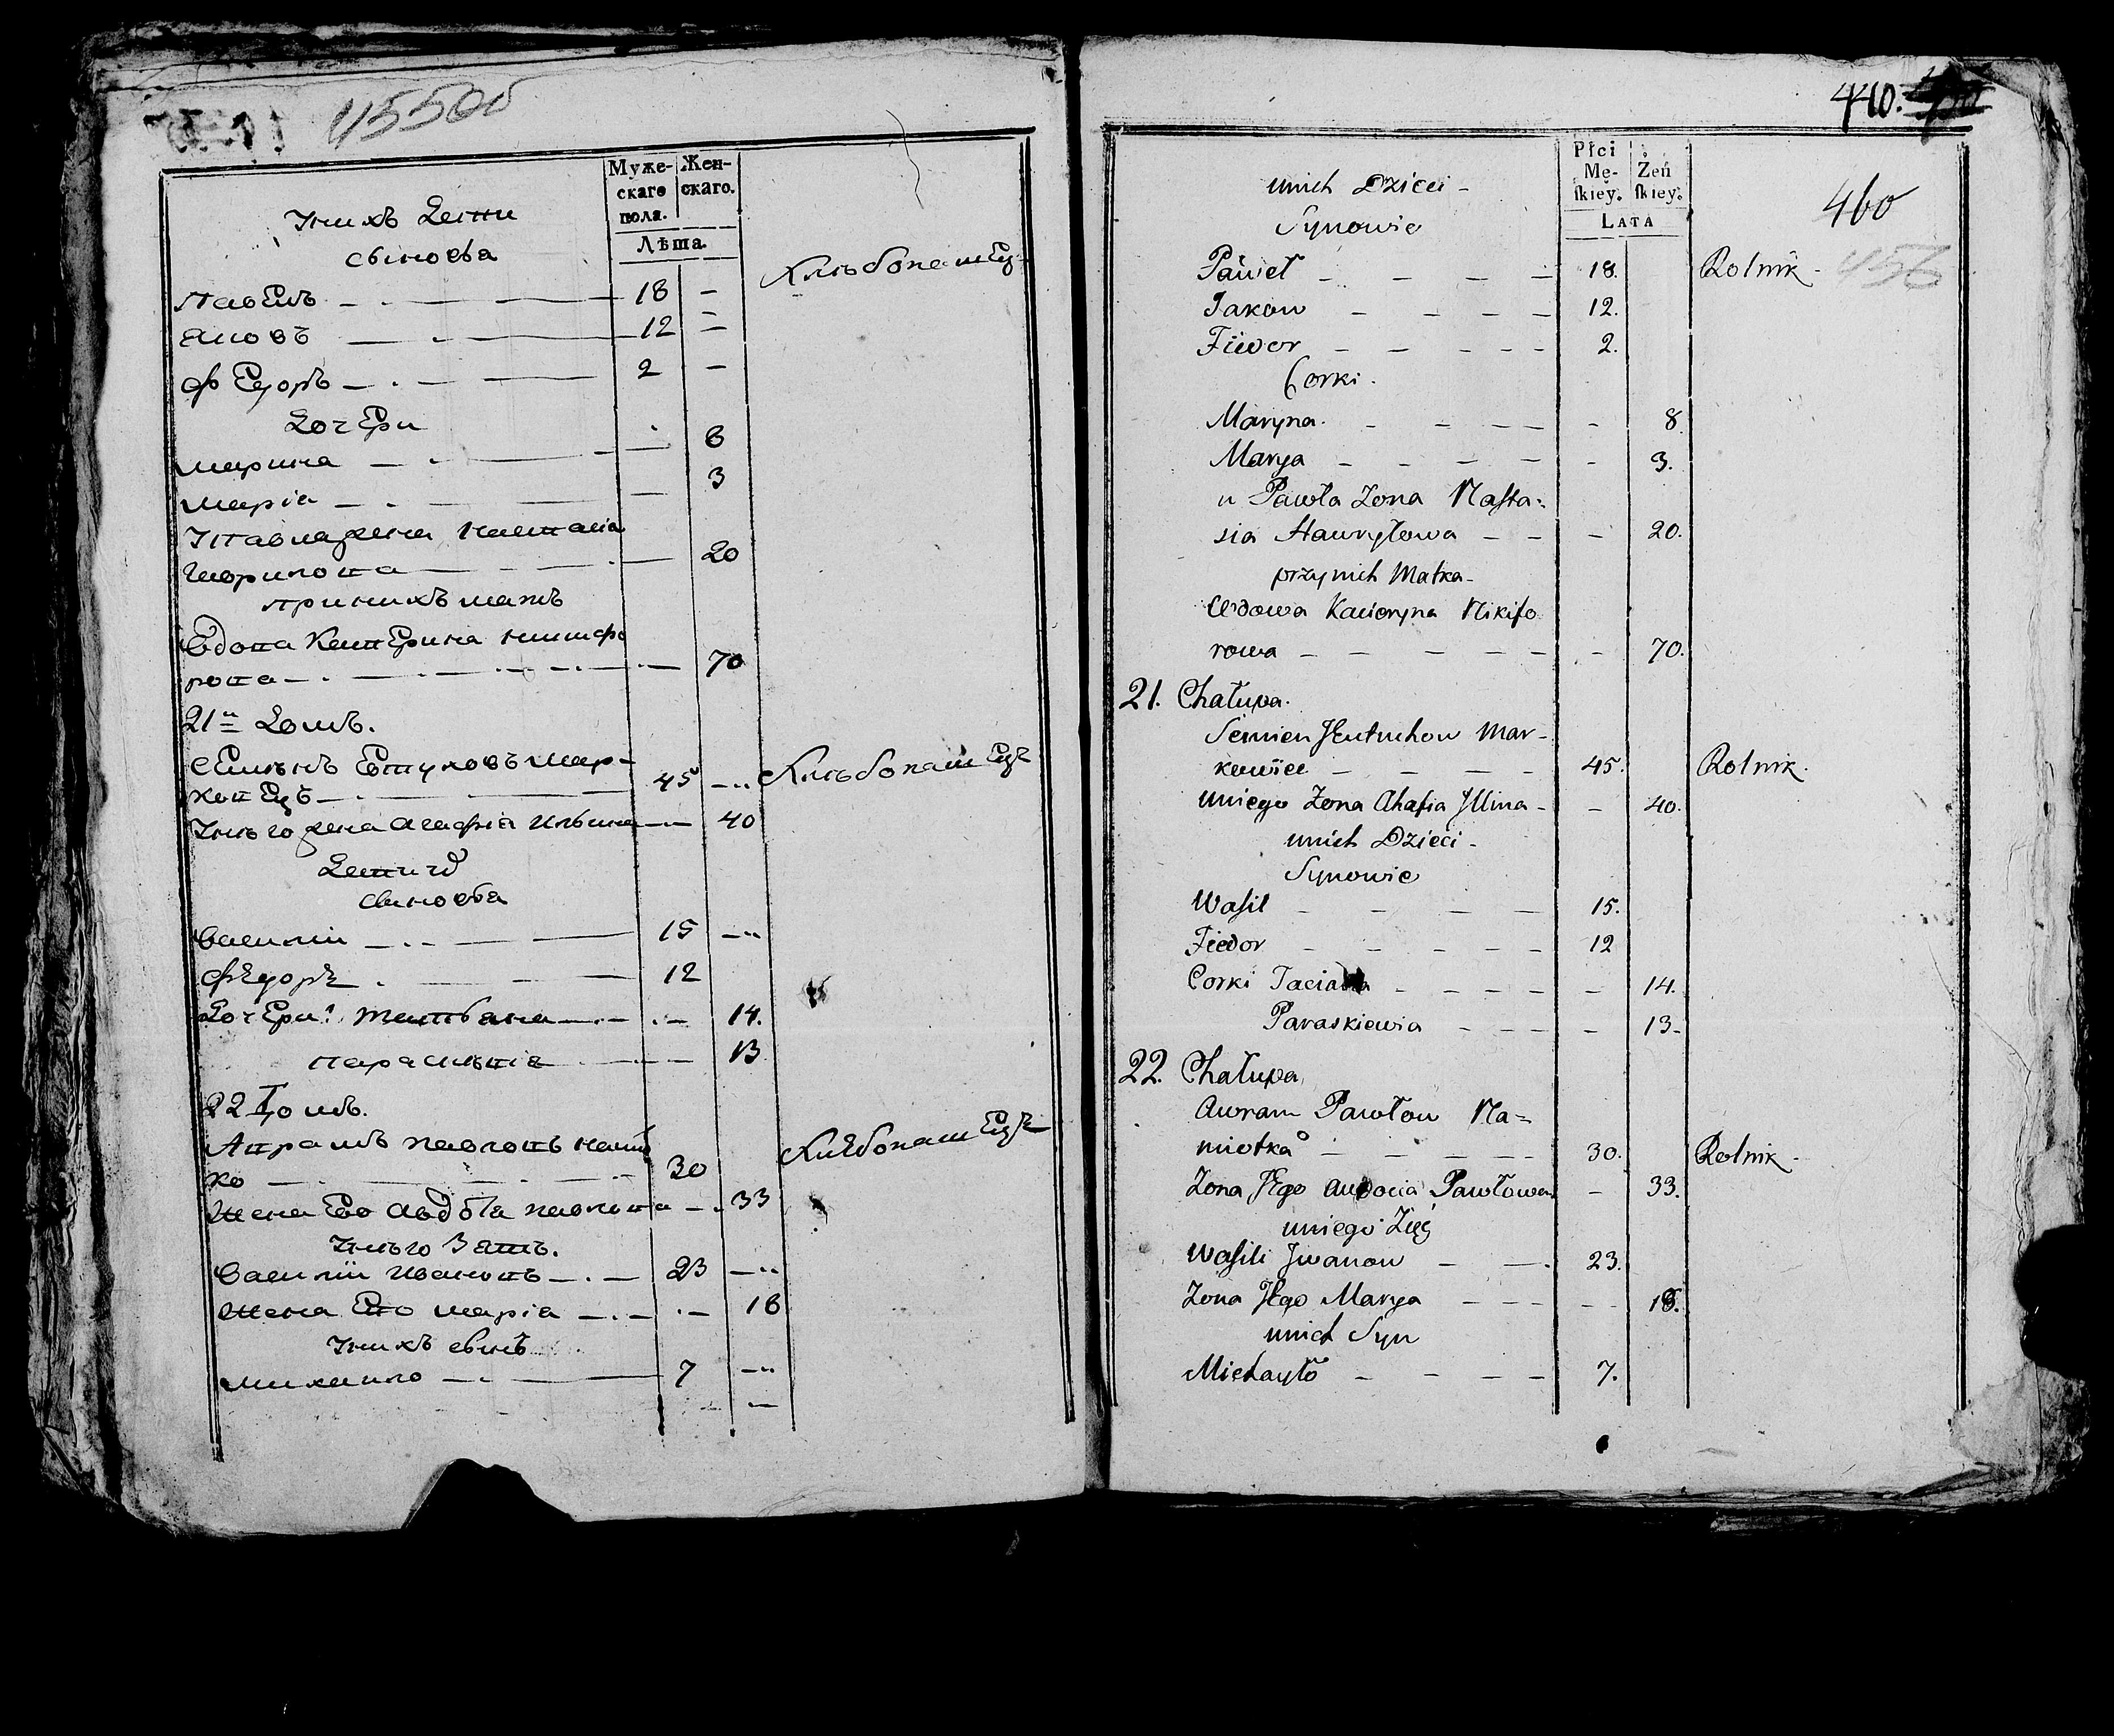 455об
Муже-
скаго
пола.
Жен-
скаго.
Лѣта.
Унихъ Дети
сыновья
Павелъ — 18 —
Яковъ — 12 —
Федоръ — 2 —
Дочери
Марина — 8
Марія — 3
У Павла жена Настасіа
Гаврилова — 20
При нихъ мать
Вдова Катерина Никифо
рова — 70
21й Домъ.
Семенъ Евтуховъ Мар-
ковецъ — 45 — Хлѣбопашецъ
Унего жена Агафіа Ильина — 40
Дети ихъ
сыновья
Василий — 15 —
Федоръ — 12
Дочери: Татьяна — 14.
Параскевиа — 13
22 Домъ.
Аврамъ Павловъ Намiот
ко — 30 Хлѣбопашецъ
Жена Его Авдотіа Павлова — 33
Унего Зять.
Василий Ивановъ — 23 —
Жена Его Марія — 18
Унихъ сынъ
Михайло — 7 —
Хлѣбопашецъ
410.
Płci
Mę-
ſkiey.
Żeń
ſkiey.
LATA
460
456
unich Dzieci -
Synowie
Paweł — 18. Rolnik -
Jakow — 12.
Fiedor — 2.
Corki.
Maryna. — 8.
Marya — 3.
u Pawła Zona Naſta=
sia Hawryłowa — 20.
przy nich Matka -
Wdowa Kacieryna Nikifo
rowa — 70.
21. Chałupa.
Siemien Jewtuchow Mar-
kowiec — 45. Rolnik.
uniego Zona Ahafia Jllina — 40.
unich Dzieci -
Synowie
Waſil — 15.
Fiedor — 12
Corki Taciana — 14.
Paraskiewia — 13 -
22. Chałupa
Awram Pawłow Na=
miotko — 30. Rolnik -
Zona Jego Audocia Pawłowa — 33.
uniego Zięć
Waſili Jwanow — 23.
Zona Jego Marya — 18.
unich Syn
Michayło — 7.